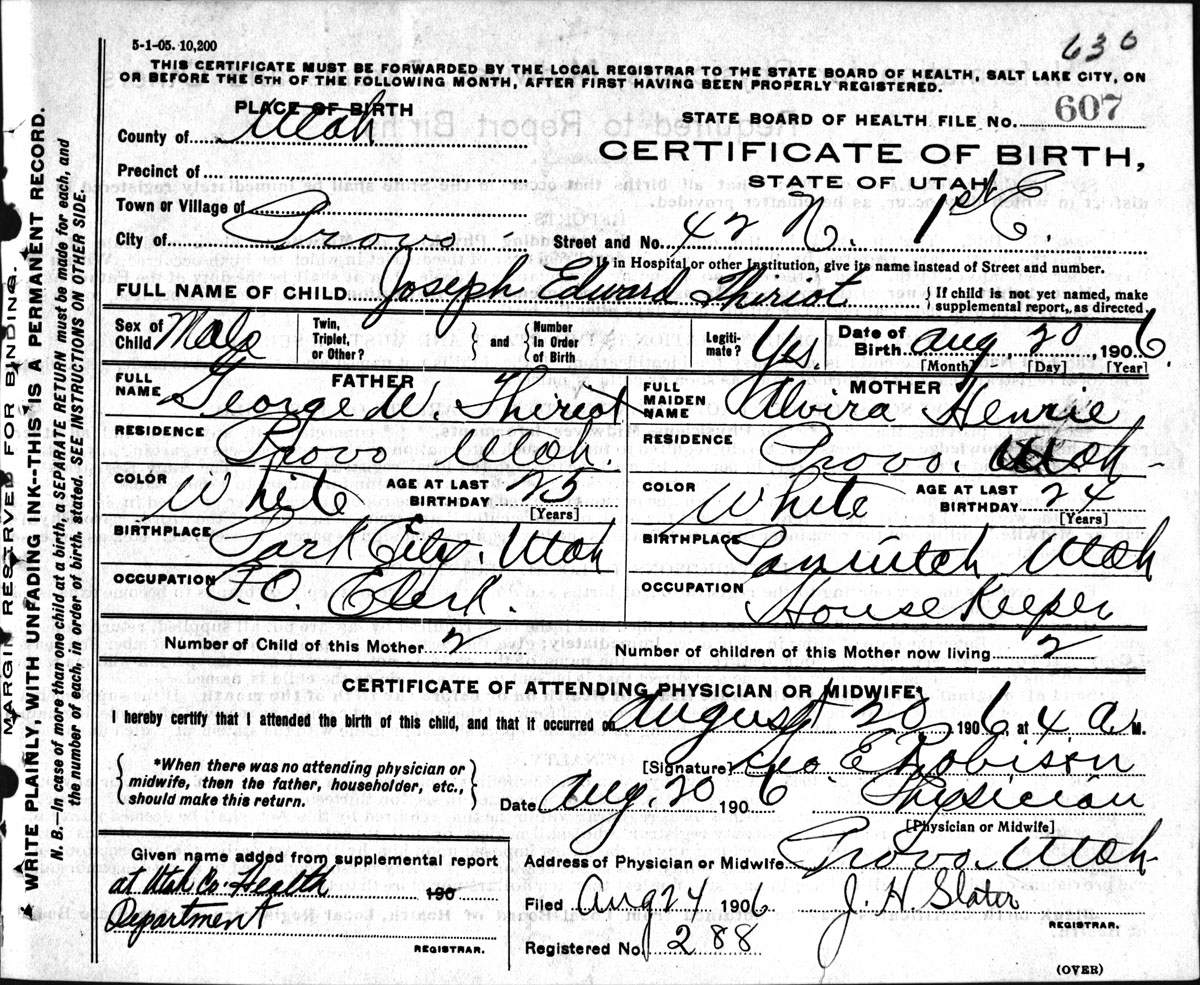 5-1-05. 10,200
630
THIS CERTIFICATE MUST BE FORWARDED BY THE LOCAL REGISTRAR TO THE STATE BOARD OF HEALTH, SALT LAKE CITY, ON
OR BEFORE THE 5TH OF THE FOLLOWING MONTH, AFTER FIRST HAVING BEEN PROPERLY REGISTERED.
PLACE OF BIRTH
STATE BOARD OF HEALTH FILE NO. 607
County of Utah
CERTIFICATE OF BIRTH,
STATE OF UTAH
Precinct of
Town or Village of
City of Provo Street and No. 42 N. 1st E.
If in Hospital or other Institution, give its name instead of Street and number.
FULL NAME OF CHILD Joseph Edward Thiriot { If child is not yet named, make supplemental report, as directed.
Sex of Child Male Twin, Triplet, or Other? } and { Number in Order of Birth Legitimate? Yes. Date of Birth Aug 20 1906
[Month] [Day] [Year]
FATHER
FULL NAME George W. Thiriot
RESIDENCE Provo Utah.
COLOR White AGE AT LAST BIRTHDAY 25 [Years]
BIRTHPLACE Park City. Utah
OCCUPATION P.O. Clerk.
MOTHER
FULL MAIDEN NAME Alvira Henrie
RESIDENCE Provo. Utah
COLOR White AGE AT LAST BIRTHDAY 24 [Years]
BIRTHPLACE Utah
OCCUPATION House Keeper
Number of Child of this Mother 2 Number of children of this Mother now living 2
CERTIFICATE OF ATTENDING PHYSICIAN OR MIDWIFE*
I hereby certify that I attended the birth of this child, and that it occurred on August 20, 1906, at 4, A M.
{ *When there was no attending physician or midwife, then the father, householder, etc., should make this return. }
[Signature] Geo. E Robison
Date Aug. 20 1906 Physician
[Physician or Midwife]
Address of Physician or Midwife Provo. Utah
Given name added from supplemental report
at Utah Co. Health 190
Department
REGISTRAR.
Filed Aug 24 1906 J. H. Slater
REGISTRAR.
Registered No. 288
(OVER)
MARGIN RESERVED FOR BINDING.
WRITE PLAINLY, WITH UNFADING INK--THIS IS A PERMANENT RECORD.
N. B. In case of more than one child at a birth, a SEPARATE RETURN must be made for each, and
the number of each, in order of birth, stated. SEE INSTRUCTIONS ON OTHER SIDE.